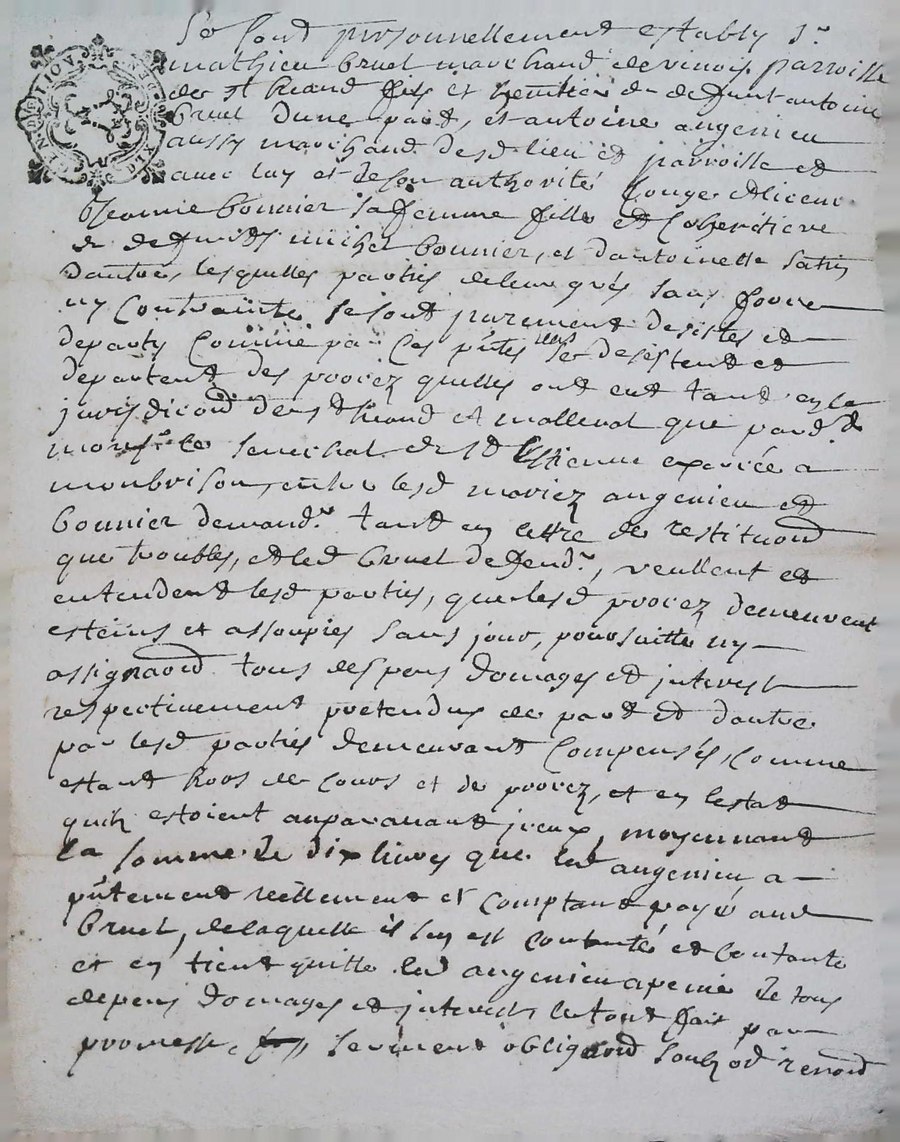 Se sont personnellement establys sr
mathieu bruel marchand de vinois parroisse
de st heand fils et heritier de deffunt antoine
bruel d'une part, et antoine angenieu
aussy marchand desd lieu et parroisse et
avec luy et de son authorité conge et licence
Jeanne bonnier sa femme fille et coheritiere
de deffuncts michel bonnier, et d'antoinette
dautre, lesquelles parties de leur grés sans force
ny contrainte se sont purement desistes et
departy comme par ces pntes ilz se desistent et
departent des procez quelles ont eut tant en la
jurisdicon de st heand et malleval que pard
monsr le senechal de st Estienne exercée a
monbrison, entre lesd mariez angenieu et
bonnier demandrs tant en lettre de restituon
que troubles, et led bruel deffendr, veullent et
entendent lesd parties, que lesd procez demeurent
esteins et assoupies sans jour, poursuitte ny
assignaon tous despens domages et interest
respectivement pretendus de part et dautre
par lesd parties demeurant compensés, comme
estant hors de cours et de procez, et en lestat
quilz estoient auparavant jceux, moyennant
la somme de dix livres que led angenieu a
pntement reellement et comptant payé aud
bruel, de laquelle il sen est contenté et contante
et en tient quitte led angenieu de tous
depens domages et interest le tout fait par
promesse, serment obligaon soubz et renon